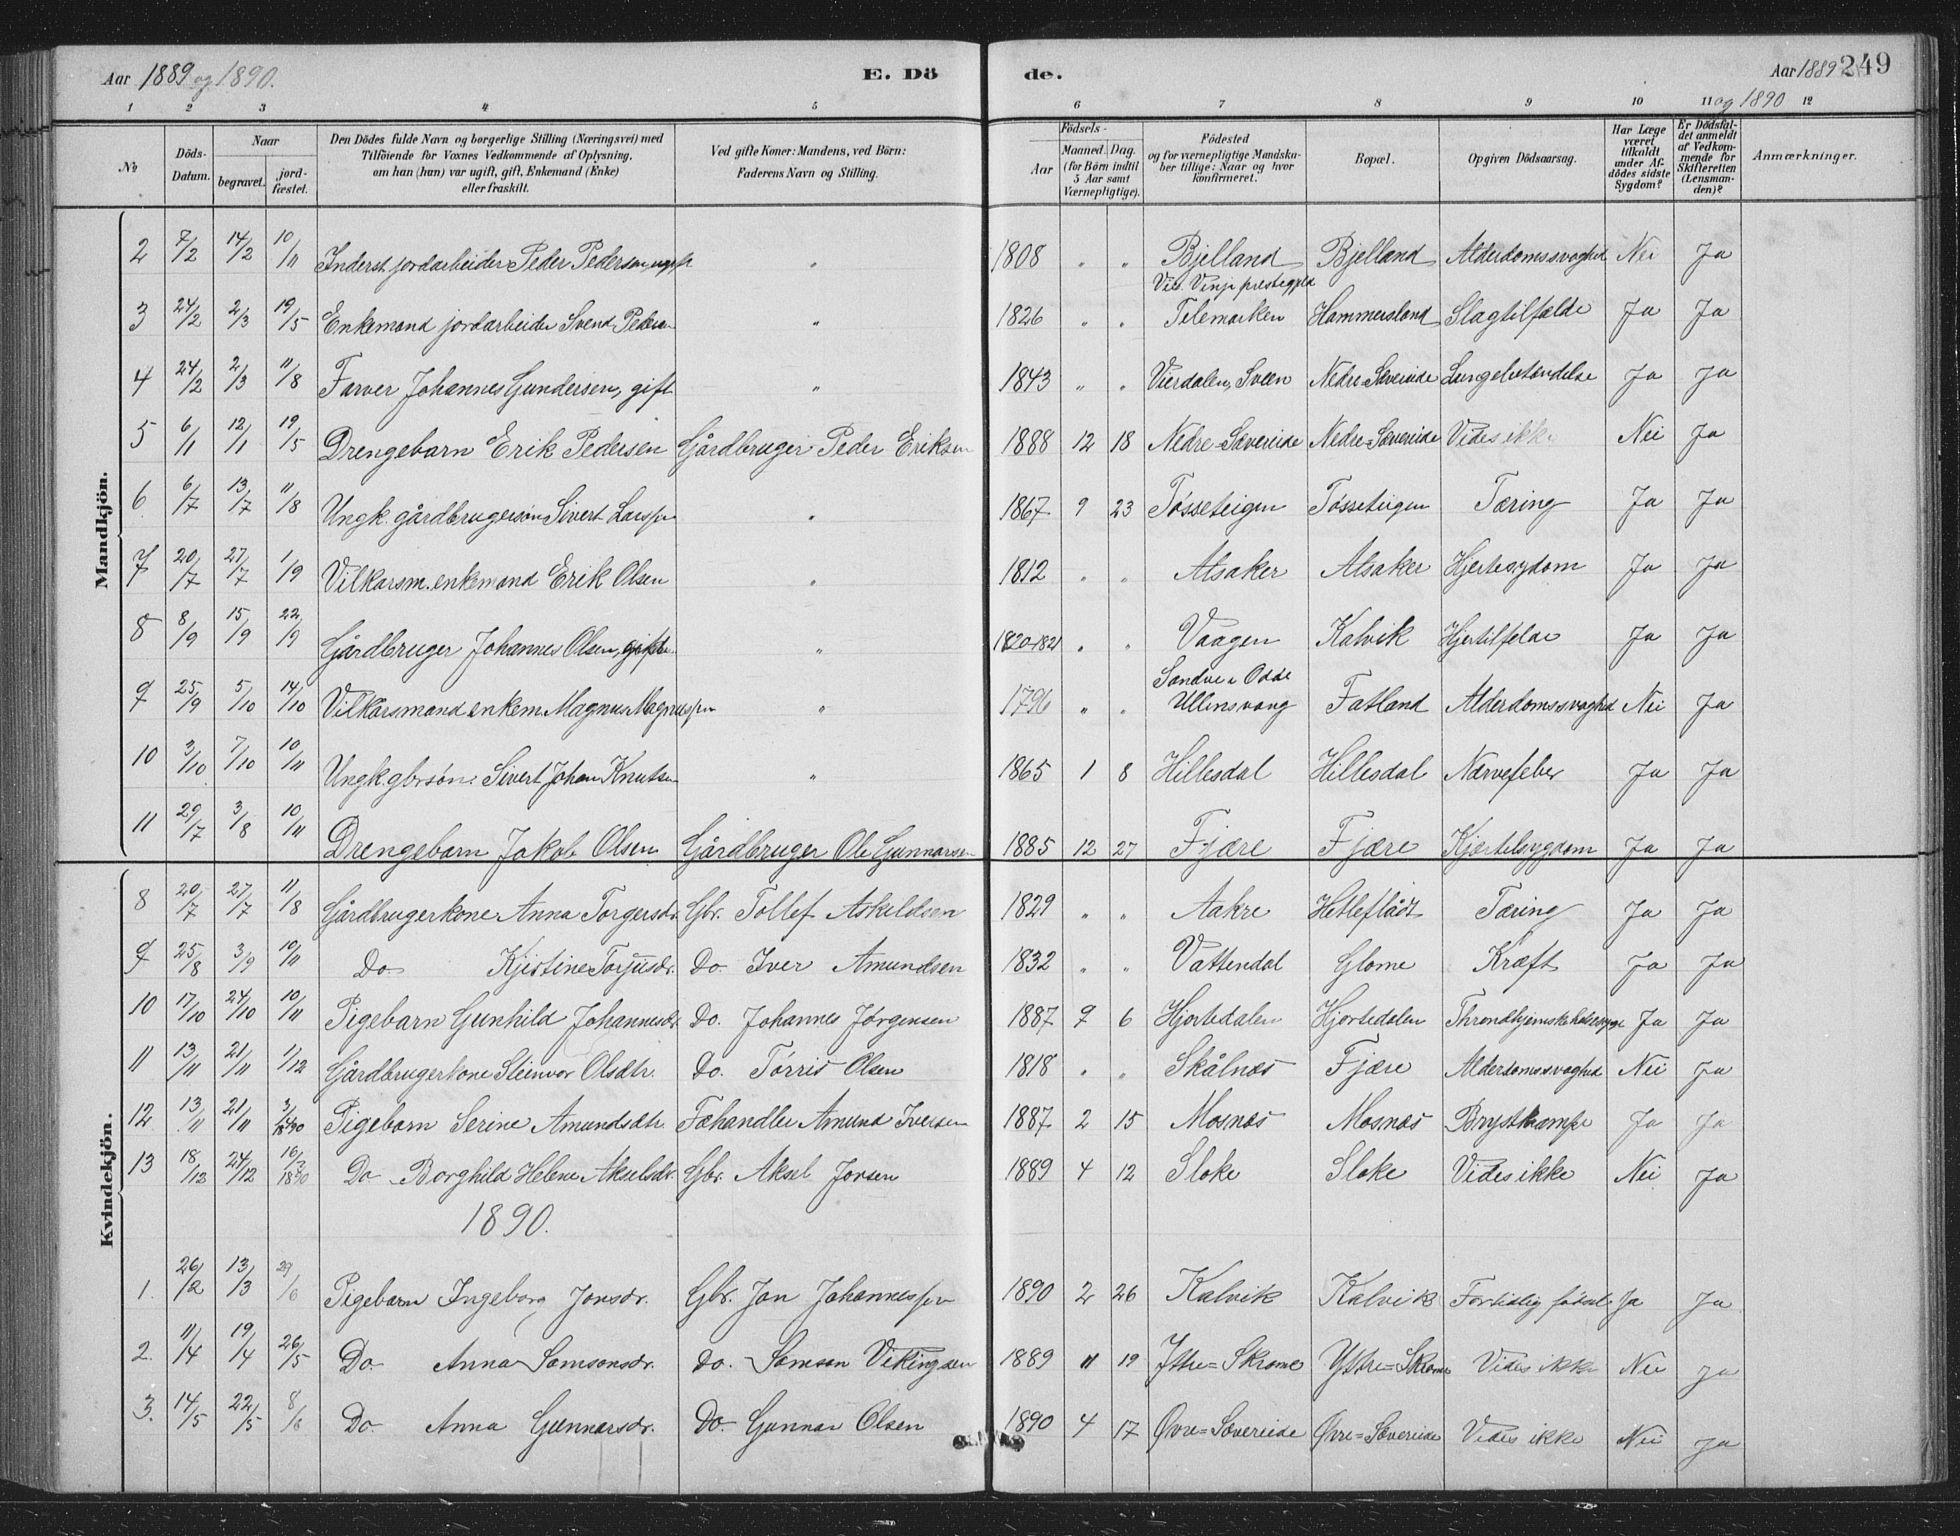 Aar 1889 og 1890. E. Dö de. Aar 1889 249
og 1890
1 2 3 4 5 6 7 8 9 10 11 12
No
Döds-Datum.
Naar
begravet.
jord-fæstet.
Den Dödes fulde Navn og borgerlige Stilling (Næringsvei) med
Tilföiende for Voxnes Vedkommende af Oplysning,
om han (hun) var ugift, gift, Enkemand (Enke)
eller fraskilt.
Ved gifte Koner: Mandens, ved Börn:
Faderens Navn og Stilling.
Födsels-
Aar
Maaned. Dag.
(for Börn indtil
5 Aar samt
Værnepligtige).
Födested
og for værnepligtige Mandska-
ber tillige: Naar og hvor
konfirmeret.
Bopæl.
Opgiven Dödsaarsag.
Har Læge
været
tilkaldt
under Af-
dödes sidste
Sygdom?
Er Dödsfal-
det anmeldt
af Vedkom-
mende for
Skifteretten
(Lensman-
den)?
Anmærkninger.
Mandkjön.
2 7/2 14/2 10/11 Inderst jordarbeider Peder Pedersen, ugift " 1808 " " Bjelland Bjelland Alderdomssvaghed Nei Ja
3 24/2 2/3 19/5 Enkemand jordarbeider Svend Pedersen " 1826 " " Vinje prestegjeld Telemarken Hammersland Slagtilfælde Ja Ja
4 24/2 2/3 11/8 Farver Johannes Gundersen, gift " 1843 " " Vierdalen, Sveen Nedre=Sævereide Lungebetændelse Ja Ja
5 6/1 12/1 19/5 Drengebarn Erik Pedersen Gårdbruger Peder Eriksen 1888 12 18 Nedre=Sævereide Nedre=Sævereide Vides ikke Nei Ja
6 6/7 13/7 11/8 Ungk. gårdbrugersøn Sivert Larssen " 1867 9 23 Tøsseteigen Tøsseteigen Tæring Ja Ja
7 20/7 27/7 1/9 Vilkårsm. enkemand Erik Olsen " 1812 " " Alsaker Alsaker Hjertesygdom Ja Ja
8 8/9 15/9 22/9 Gårdbruger Johannes Olsen, gift " 1820-1821 " " Vaagen Kalvik Hjertilfelde Ja Ja
9 25/9 5/10 14/10 Vilkårsmand enkem. Magnus Magnussen " 1796 " " Sandve i Odde Ullensvang Fatland Alderdomssvaghed Nei Ja
10 3/10 7/10 10/11 Ungk. gbrsøn: Sivert Johan Knutsen " 1865 1 8 Hillesdal Hillesdal Nervefeber Ja Ja
11 29/7 3/8 10/11 Drengebarn Jakob Olsen Gårdbruger Ole Gunnarsen 1885 12 27 Fjære Fjære Kjertelsygdom Ja Ja
Kvindekjön.
8 20/7 27/7 11/8 Gårdbrugerkone Anna Torgersdr. Gbr. Tollef Askildsen 1829 " " Aakre Hetleflådt Tæring Ja Ja
9 25/8 3/9 10/11 Do Kjistine Torjusdr. Do. Iver Amundsen 1832 " " Vattendal Glome Kræft Ja Ja
10 17/10 24/10 10/11 Pigebarn Gunhild Johannesdr. Do. Johannes Jørgensen 1887 9 6 Hjortedalen Hjortedalen Throndhjemske halssyge Ja Ja
11 13/11 21/11 1/12 Gårdbrugerkone Steinvor Olsdtr. Do. Tørris Olsen 1818 " " Skålnæs Fjære Alderdomssvaghed Nei Ja
12 13/11 21/11 3/1890 Pigebarn Serine Amundsdtr. Fæhandler Amund Iversen 1887 2 15 Mosnæs Mosnæs Brystkrampe Ja Ja
13 18/12 24/12 16/3 1890 Do Borghild Helene Akselsdr. Gbr. Aksel Jorsen 1889 4 12 Sloke Sloke Vides ikke Nei Ja
1890.
1. 26/2 13/3 29/6 Pigebarn Ingeborg Jonsdr. Gbr. Jon Johannessen 1890 2 26 Kalvik Kalvik For tidlig fødsel Ja Ja
2. 11/4 19/4 26/5 Do Anna Samsonsdr. Do. Samson Vikingsen 1889 11 19 Ystre=Skrome Ystre=Skrome Vides ikke Nei Ja
3. 14/5 22/5 8/6 Do Anna Gunnarsdr. Do. Gunnar Olsen 1890 4 17 Øvre=Sævereide Øvre=Sævereide Vides ikke Nei Ja